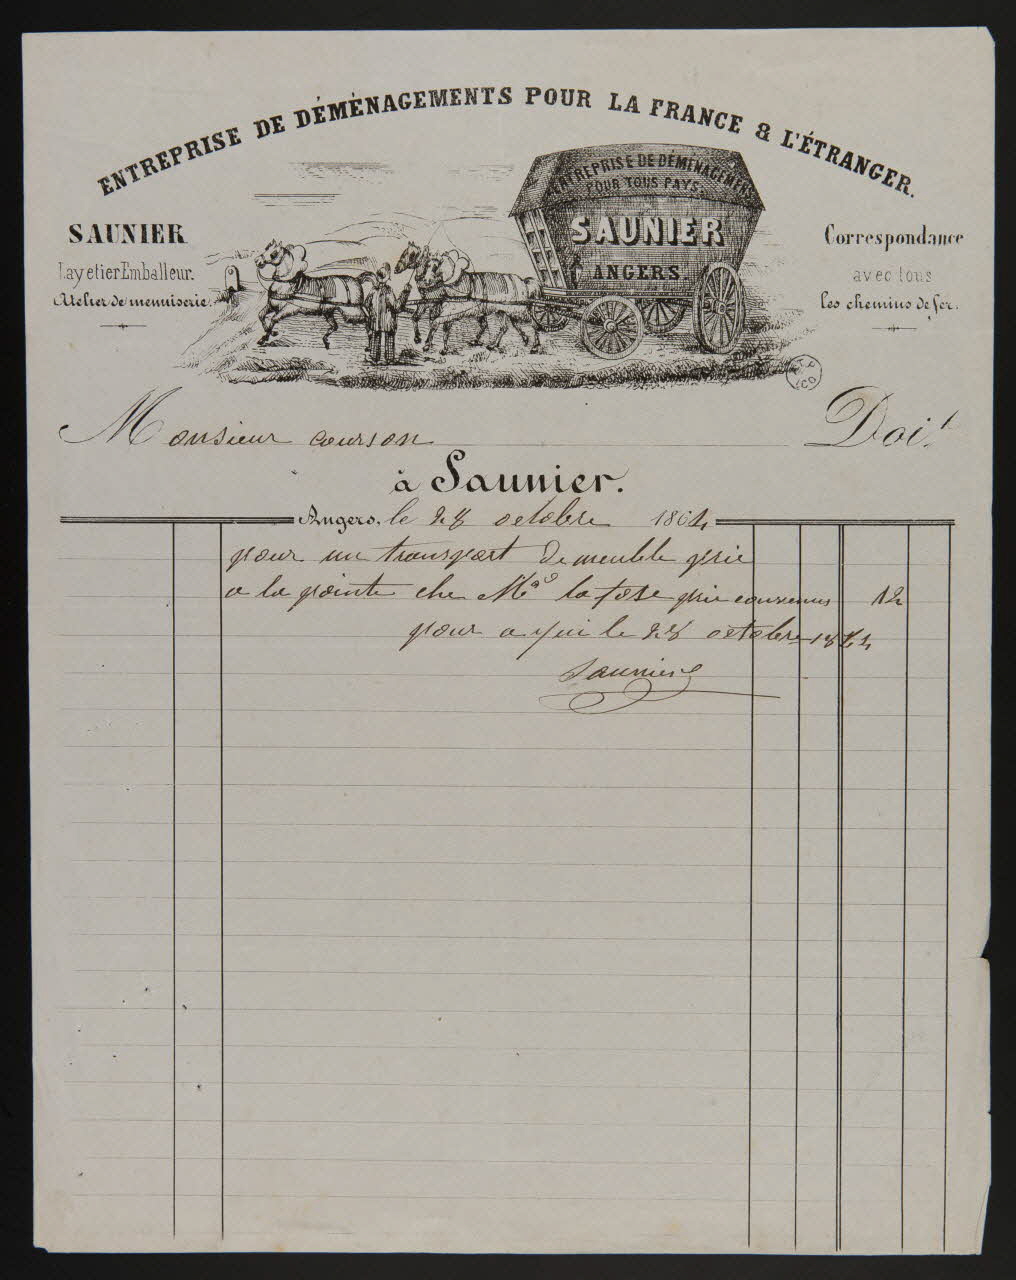 ENTREPRISE DE DÉMÉNAGEMENTS POUR LA FRANCE & L'ÉTRANGER.
SAUNIER
Layetier Emballeur.
Atelier de menuiserie.
ENTREPRISE DE DÉMÉNAGEMENT
POUR TOUS PAYS.
SAUNIER
ANGERS.
Correspondance
avec tous
les chemins de fer.
Monsieur courson Doit
à Saunier.
Angers, le 28 octobre 1864
pour un transport de meuble prie
a la pointe che Me la fosse prie convenus 12
pour aqui le 28 octobre 1864
Saunier